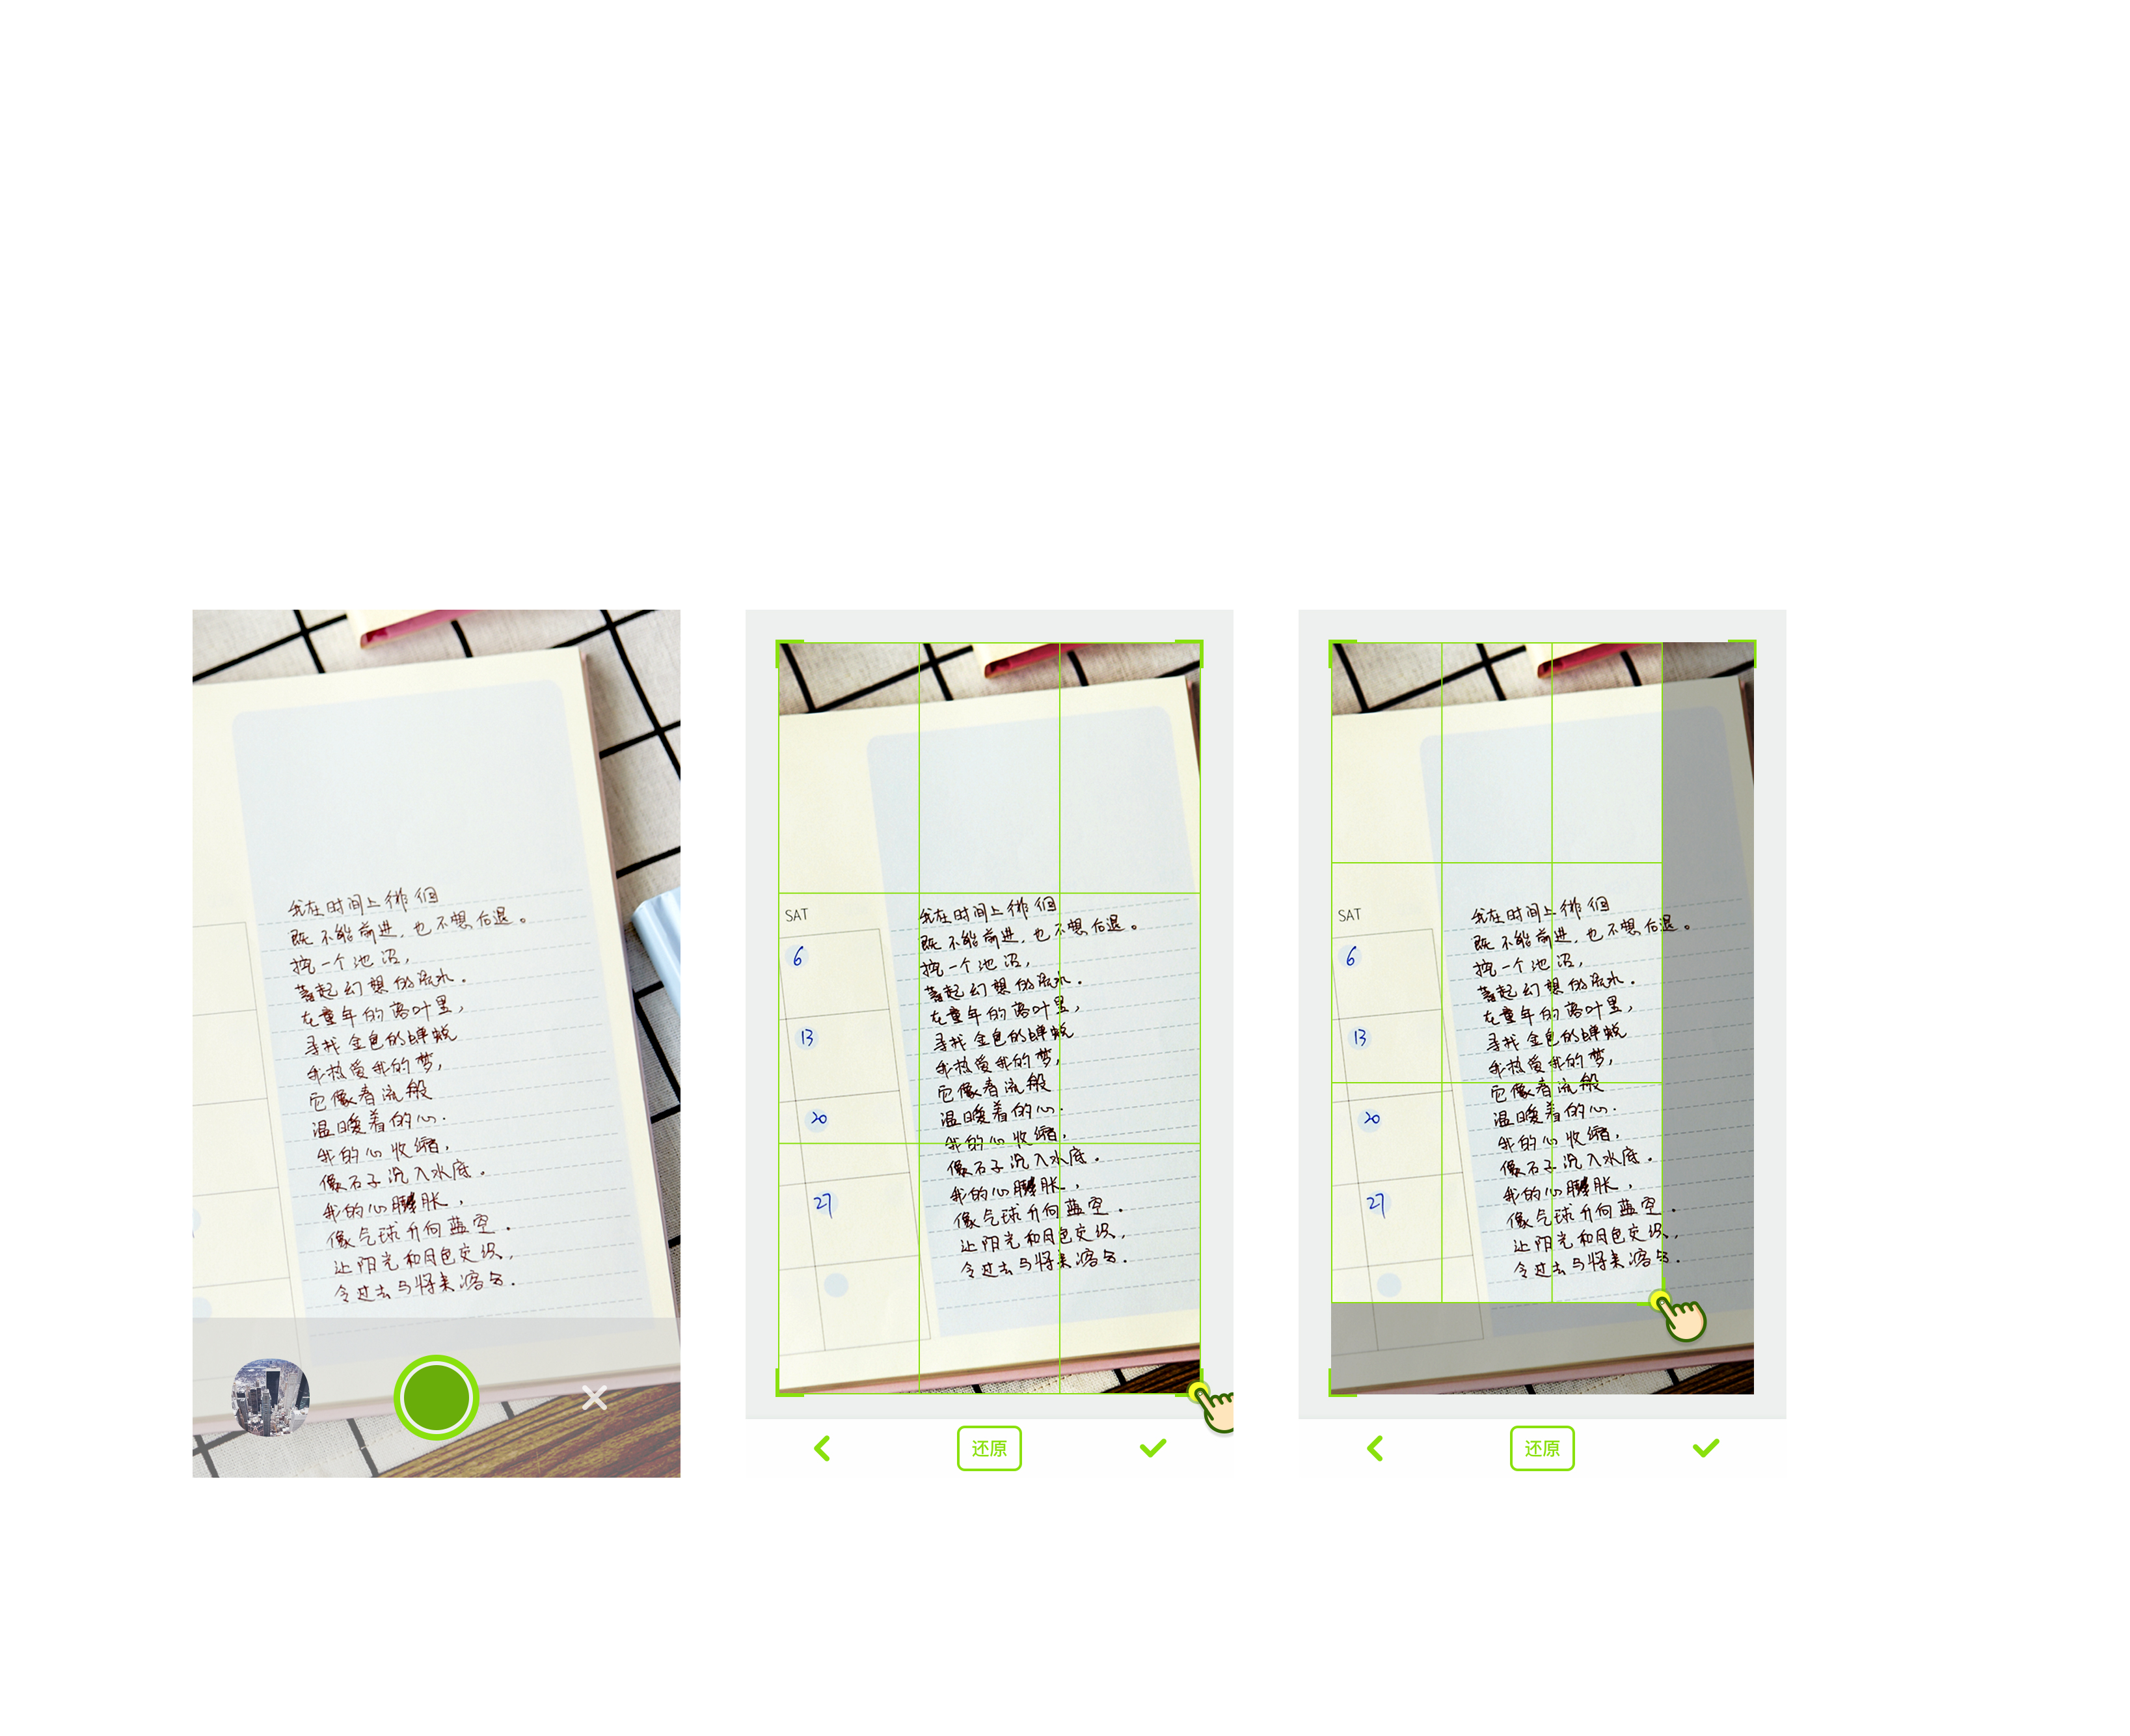 我在时间上徘徊
既不能前进,也不想后退。
挖一个池沼,
蓄起幻想的流水。
在童年的落叶里,
寻找金色的蝉蜕
我热爱我的梦,
它像春流般
温暖着的心.
我的心收缩,
像石子沉入水底。
我的心膨胀,
像气球升向蓝空.
让阳光和月色交织,
令过去与将来溶合.
SAT
6
13
20
27
我在时间上徘徊
既不能前进,也不想后退。
挖一个池沼,
蓄起幻想的流水.
在童年的落叶里,
寻找金色的蝉蜕
我热爱我的梦,
它像春流般
温暖着的心.
我的心收缩,
像石子沉入水底.
我的心膨胀,
像气球升向蓝空.
让阳光和月色交织,
令过去与将来溶合.
还原
SAT
6
13
20
27
我在时间上徘徊
既不能前进,也不想后退。
挖一个池沼,
蓄起幻想的流水.
在童年的落叶里,
寻找金色的蝉蜕
我热爱我的梦,
它像春流般
温暖着的心.
我的心收缩,
像石子沉入水底.
我的心膨胀,
像气球升向蓝空.
让阳光和月色交织,
令过去与将来溶合.
还原